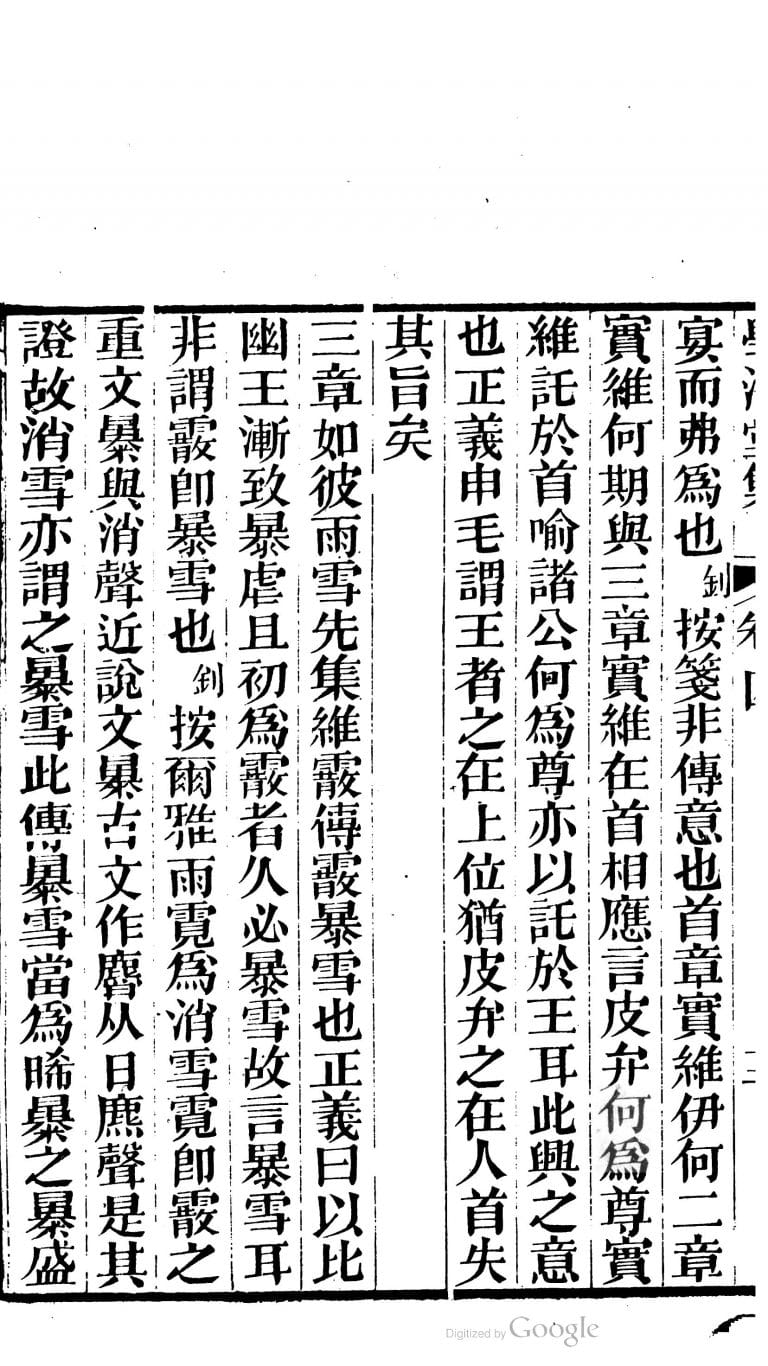 宴而弗為也釗按箋非傳意也首章實維伊何二章
實維何期與三章實維在首相應言皮弁何為尊實
維託於首喻諸公何為尊亦以託於王耳此興之意
也正義申毛謂王者之在上位猶皮弁之在人首失
其旨矣
三章如彼雨雪先集維霰傳霰暴雪也正義曰以比
幽王漸致暴虐且初為霰者久必暴雪故言暴雪耳
非謂霰卽暴雪也釗按爾雅雨霓為消雪霓卽霰之
重文暴與消聲近說文暴古文作麿从日麃聲是其
證故消雪亦謂之暴雪此傳暴雪當為晞暴之暴盛
Digitized by Google